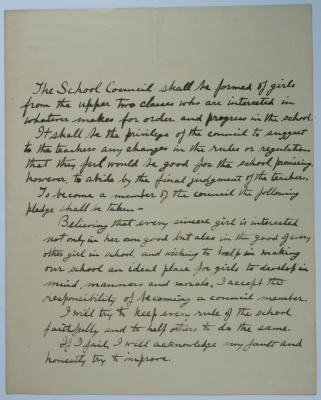 The School Council shall be formed of girls
from the upper two classes who are interested in
whatever makes for order and progress in the school.
It shall be the privilege of the council to suggest
to the teachers any changes in the rules or regulations
that they feel would be good for the school promising
however, to abide by the final judgment of the teachers.
To become a member of the council the following
pledge shall be taken -
Believing that every sincere girl is interested
not only in her own good but also in the good of every
other girl in school, and wishing to help in making
our school an ideal place for girls to develop in
mind, manners and morals, I accept the
responsibility of becoming a council member.
I will try to keep every rule of the school
faithfully and to help others to do the same.
If I fail, I will acknowledge my fault and
honestly try to improve.